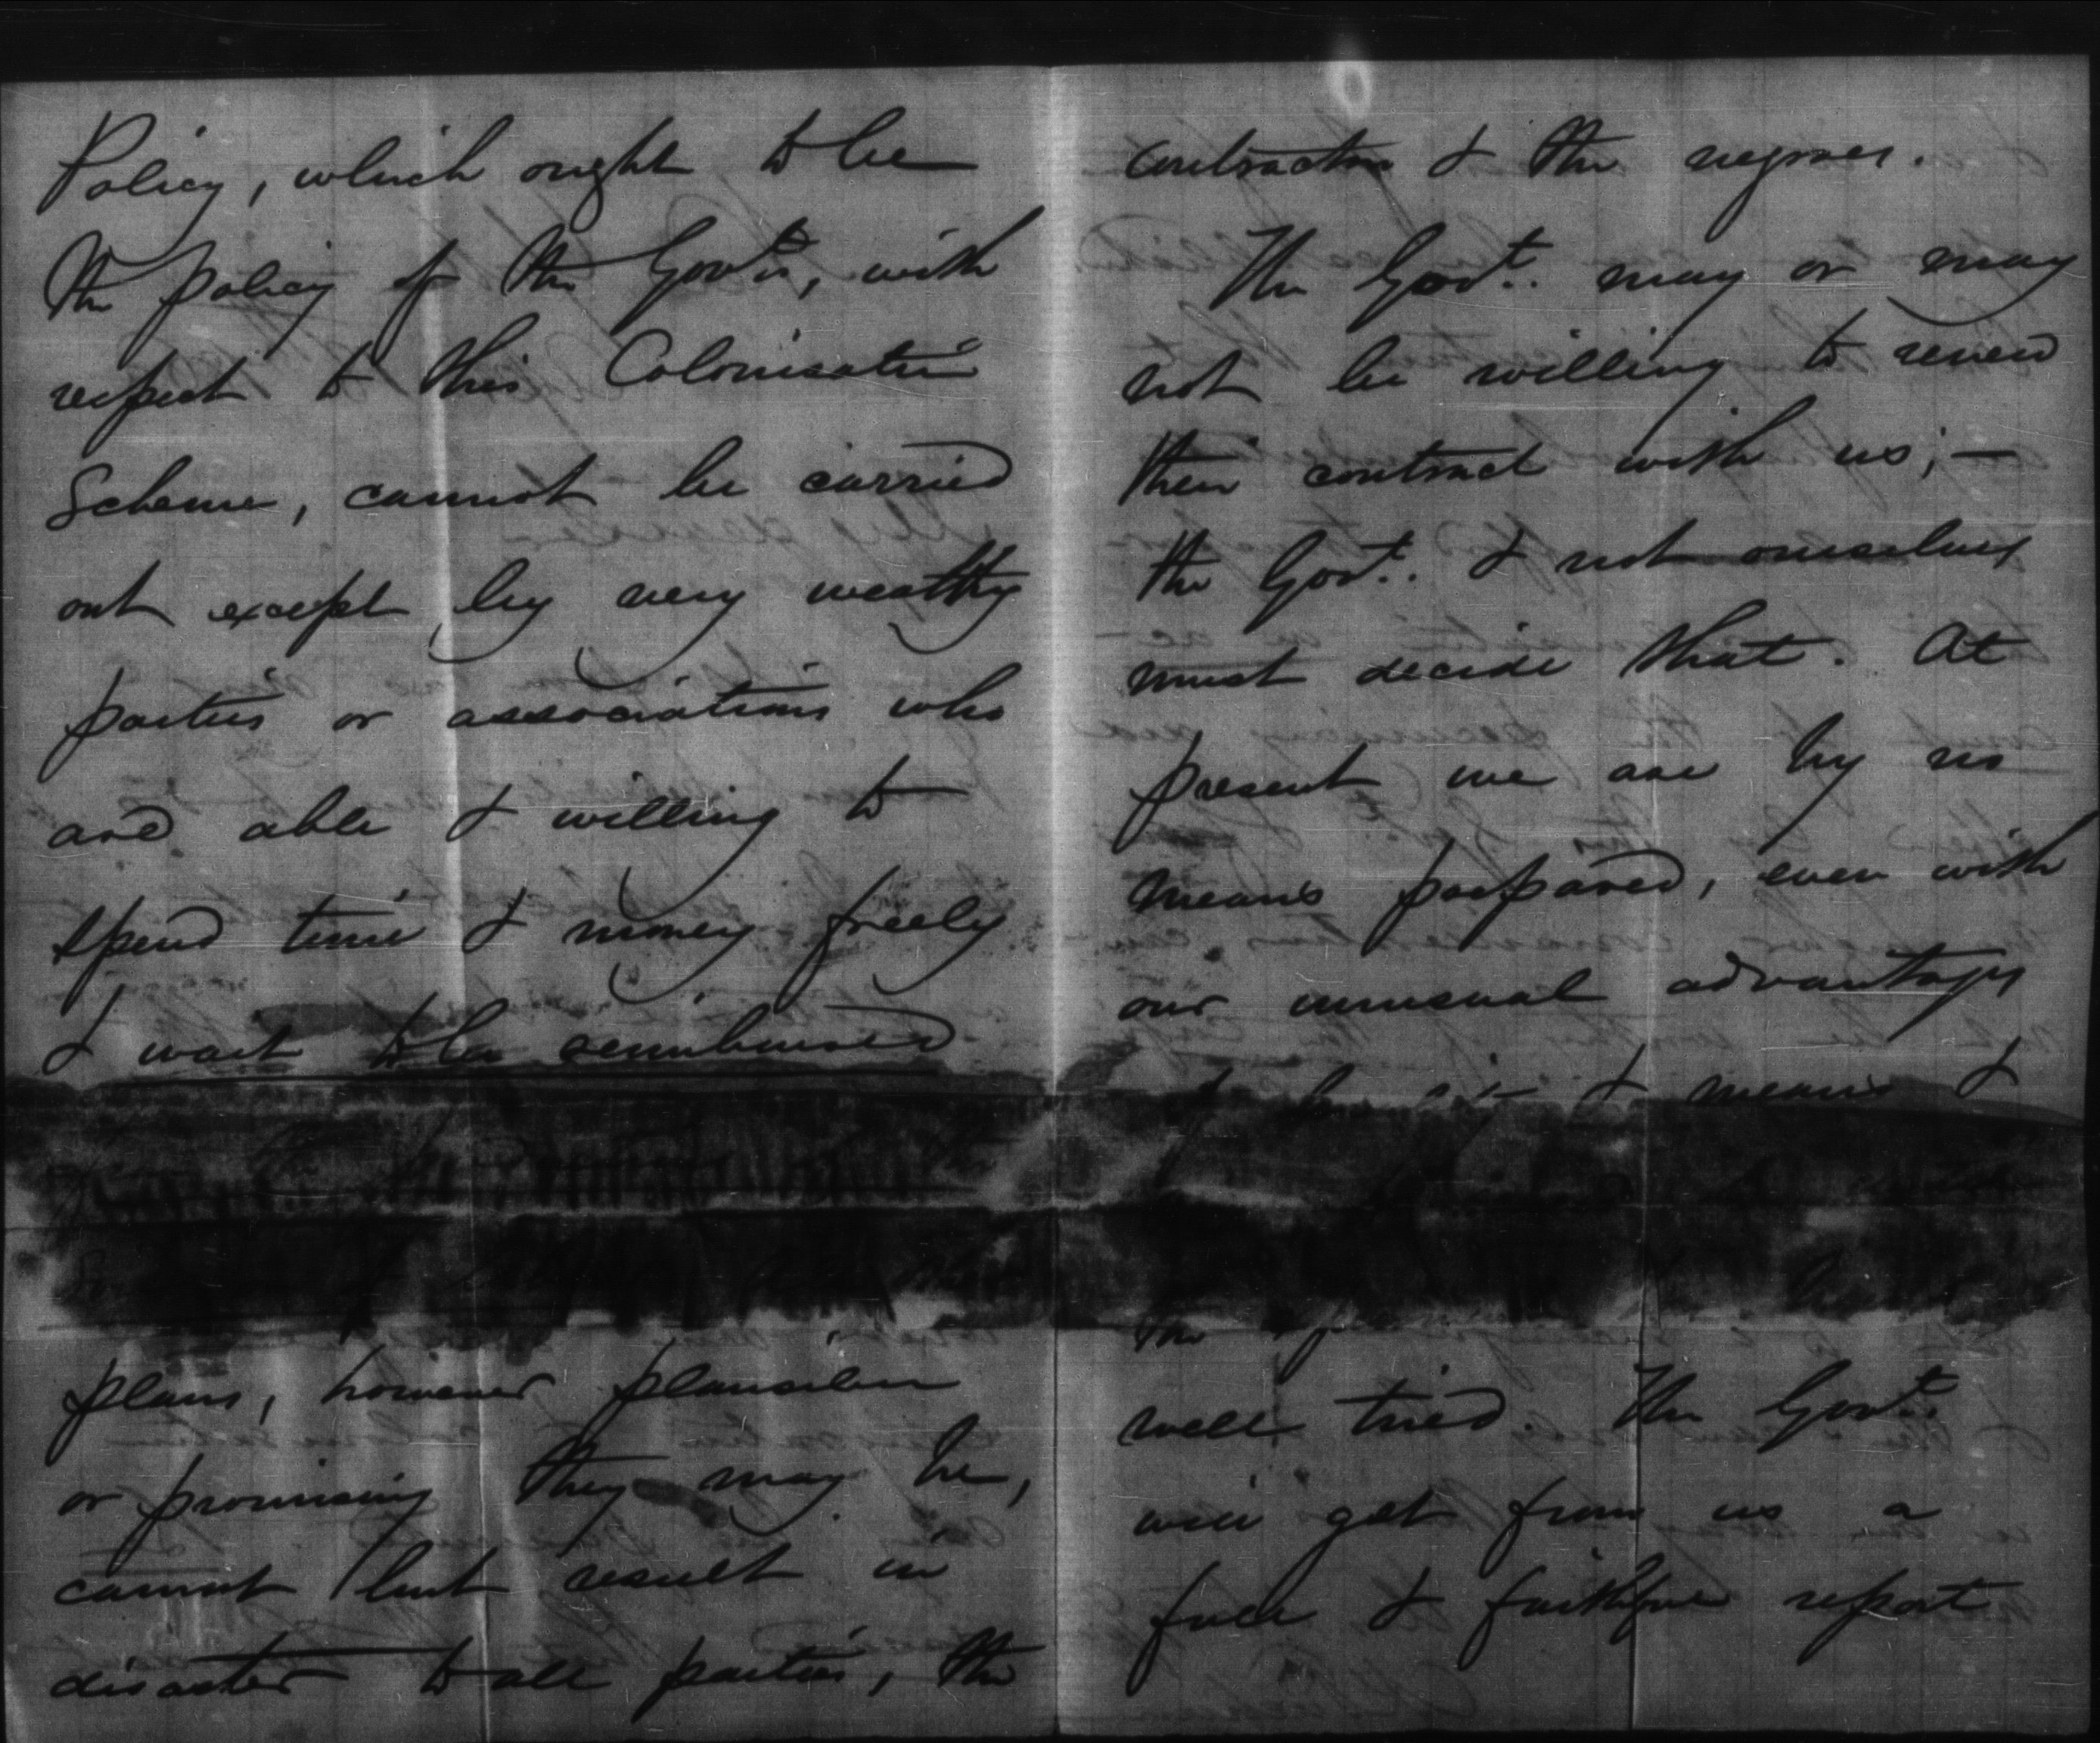 Policy, which ought to be
the policy of the Govt., with
respect to this Colonisation
Scheme, cannot be carried
out except by very wealthy
parties or associations who
are able & willing to
spend time & money freely
& wait to be reimbursed
plans, however plausible
or promising they may be,
cannot but result in
disaster to all parties, the
contractors & the negroes.
The Govt. may or may
not be willing to renew
their contract with us; —
the Govt. & not ourselves
must decide that. At
present we are by no
means prepared, even with
our unusual advantages
& means &
the
well tried. The Govt.
will get from us a
full & faithful report